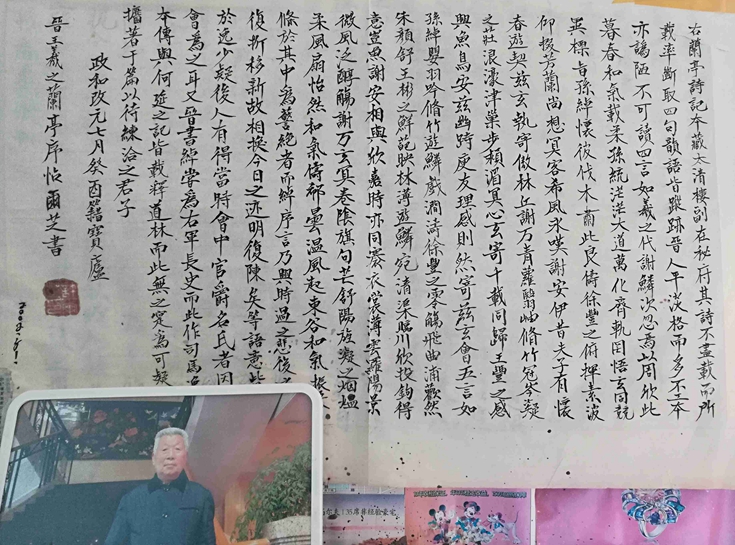 右蘭亭詩記本藏太清樓副在秘府其詩不盡載而所
載率斷取四句韻語皆蹤跡晉人平淡格而多不工本
亦譌陋不可讀四言如羲之代謝鱗次忽焉以周欣此
暮春和氣載柔孫統茫茫大道萬化齊軌罔悟玄同競
異標旨孫綽懷彼伐木肅此良儔徐豐之俯揮素波
仰掇芳蘭尚想冥客希風永嘆謝安伊昔先子有懷
春遊契茲玄執寄傲林丘謝万青蘿翳岫脩竹冠岑凝
之莊浪濠津巢步潁湄真心玄寄千載同歸王豐之感
興魚鳥安茲幽跱庾友理感則然寄茲玄會五言如
孫綽嬰羽吟脩竹遊鱗戲澗濤徐豐之零觴飛曲浦歡然
朱顏舒王彬之鮮葩映林薄遊鱗宛清渠臨川欣投鉤得
意豈魚謝安相與欣嘉時亦同褰衣裳薄雲羅陽景
微風泛醇觴謝万玄冥卷陰旗句芒舒陽旌凝之烟熅
柔風扇怡然和氣儔郗曇温風起東谷和氣
脩於其中為警絕者而綽序言乃興時過之悲後
復折移新故相換今日之迹明復陳矣等語意
於逸少疑後人有得當時會中官爵名氏者因
會為之耳又晉書綽嘗為右軍長史而此作司馬
本傳與何延之記皆載釋道林而此無之寔為可疑
攟著于篇以待練洽之君子
政和改元七月癸酉籍寶廬
晉羲之蘭亭序帖 爾芝書